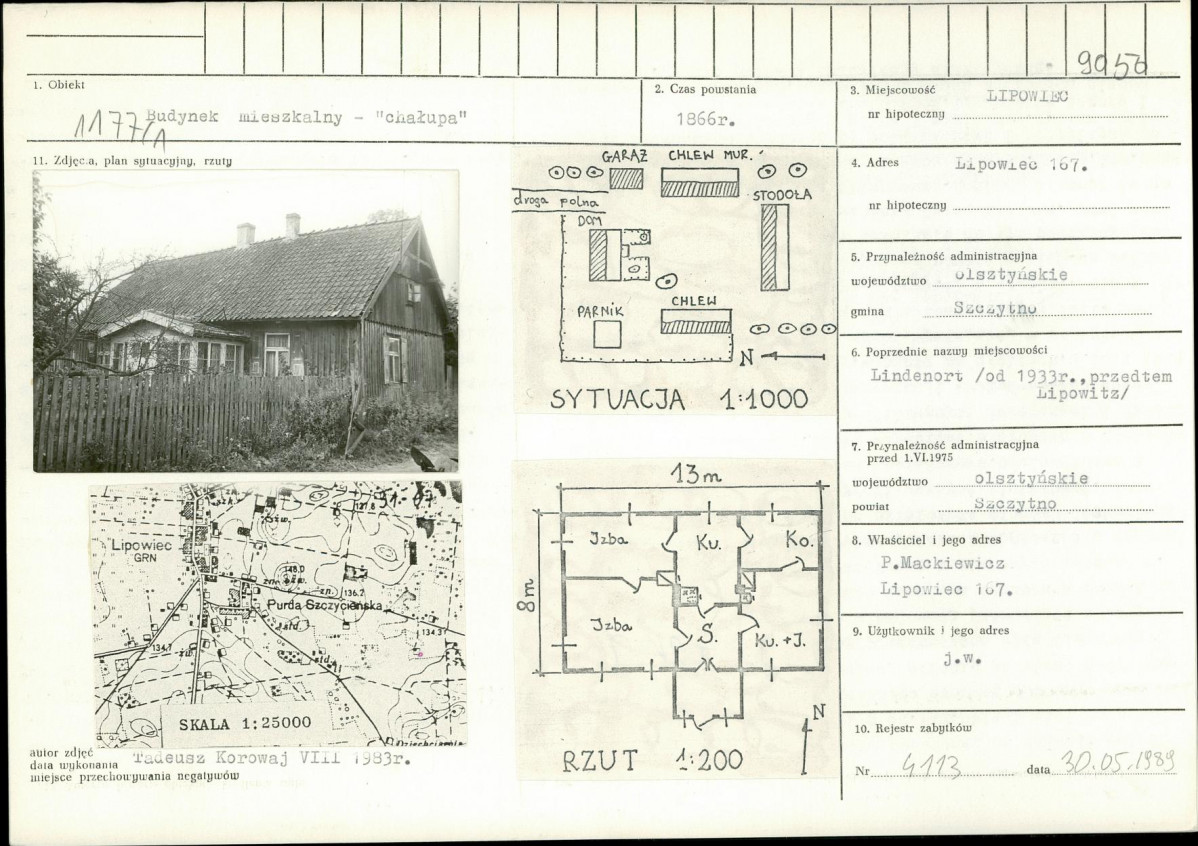 9950
1. Obiekt
Budynek mieszkalny - "chałupa"
1177/1
2. Czas powstania
1866r.
3. Miejscowość LIPOWIEC
nr hipoteczny
11. Zdjęcia, plan sytuacyjny, rzuty
GARAŻ CHLEW MUR.
droga polna
STODOŁA
DOM
PARNIK
CHLEW
N
SYTUACJA 1:1000
4. Adres Lipowiec 167.
nr hipoteczny
5. Przynależność administracyjna
województwo olsztyńskie
gmina Szczytno
6. Poprzednie nazwy miejscowości
Lindenort /od 1933r.,przedtem
Lipowitz/
7. Przynależność administracyjna
przed 1.VI.1975
województwo olsztyńskie
powiat Szczytno
8. Właściciel i jego adres
P.Mackiewicz
Lipowiec 167.
9. Użytkownik i jego adres
j.w.
10. Rejestr zabytków
Nr 4113 data 30.05.1989
13m
8m
Izba
Ku.
Ko.
Izba
S.
Ku.+I.
N
RZUT 1:200
127,8
Lipowiec
GRN
148,0
136.2
Purda Szczycieńska
134.3
134.7
SKALA 1:25000
autor zdjęć
data wykonania Tadeusz Korowaj VIII 1983r.
miejsce przechowywania negatywów